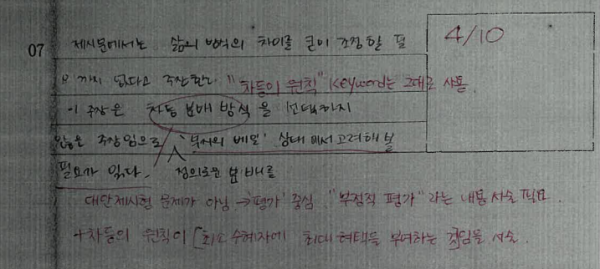 07 제시문에서는 삶의 방식의 차이를 굳이 조정할 필
요까지 없다고 주장한다. "차등의 원칙" keyword는 그대로 사용.
이 주장은 차등 분배 방식을 반대하지
않은 주장임으로 '무지의 베일' 상태에서 고려해 볼
필요가 있다. 정의로운 분배를
대안제시형 문제가 아님 → '평가' 중심. "부정적 평가"라는 내용 서술 필요.
+ 차등의 원칙이 [최소 수혜자에 최대 혜택을 부여하는 것]임을 서술.
4/10